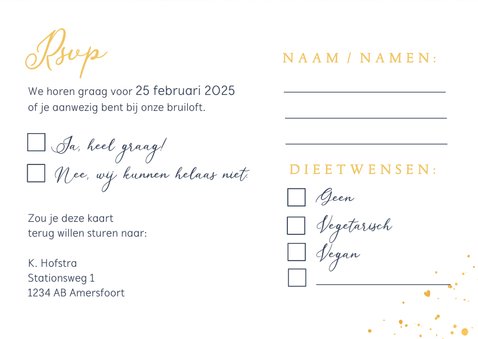 Rsvp
We horen graag voor 25 februari 2025
of je aanwezig bent bij onze bruiloft.
Ja, heel graag!
Nee, wij kunnen helaas niet.
Zou je deze kaart
terug willen sturen naar:
K. Hofstra
Stationsweg 1
1234 AB Amersfoort
NAAM / NAMEN:
DIEETWENSEN:
Geen
Vegetarisch
Vegan